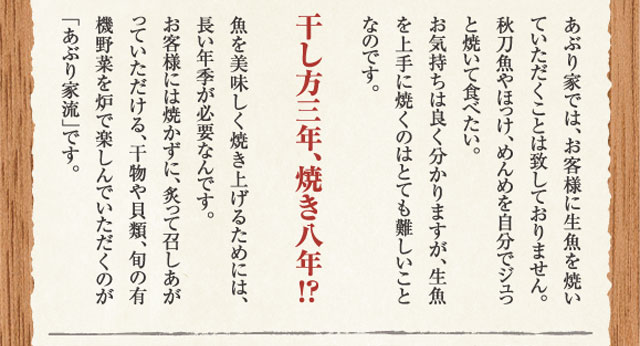 あぶり家では、お客様に生魚を焼い
ていただくことは致しておりません。
秋刀魚やほっけ、めんめを自分でジュっ
と焼いて食べたい。
お気持ちは良く分かりますが、生魚
を上手に焼くのはとても難しいこと
なのです。
干し方三年、焼き八年!?
魚を美味しく焼き上げるためには、
長い年季が必要なんです。
お客様には焼かずに、炙って召しあが
っていただける、干物や貝類、旬の有
機野菜を炉で楽しんでいただくのが
「あぶり家流」です。